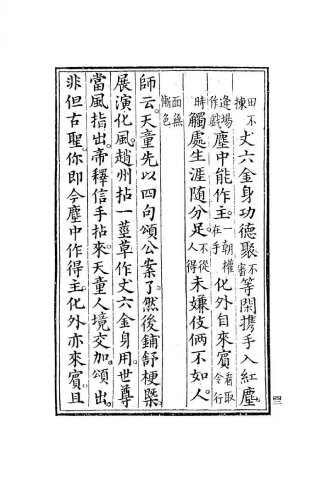 田不揀丈六金身功德聚不審等閑携手入紅塵
逢場作戯塵中能作主。一朝權在手化外自來賓看取令行
時觸處生涯随分足。不從人得未嫌伎倆不如人。
面無慚色
師云。天童先以四句頌公案了。然後鋪舒梗槩。
展演化風。趙州拈一莖草作丈六金身用。世尊
當風指出。帝釋信手拈來。天童人境交加。頌出。
非但古聖。你即今塵中作得主。化外亦來賓。且